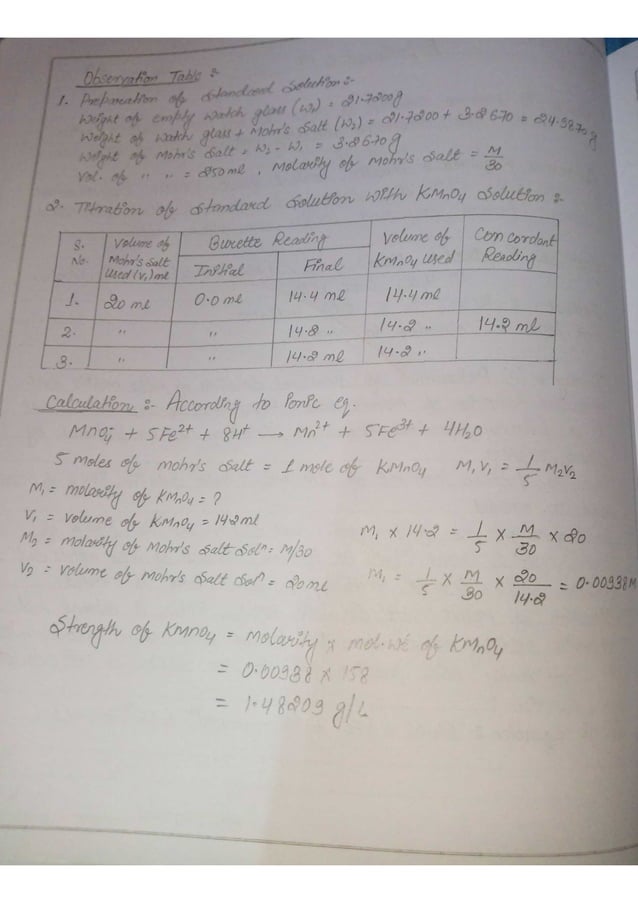 Observation Table :-
1. Preparation of Standard Solution :-
Weight of empty watch glass (W1) = 21.7200g
Weight of watch glass + Mohr's Salt (W2) = 21.7200 + 3.2670 = 24.9870g
Weight of Mohr's Salt = W2 - W1 = 3.2670g
Vol. of " " = 250ml, Molarity of Mohr's Salt = M/30
2. Titration of Standard Solution with KMnO4 Solution :-
S. No. | Volume of Mohr's Salt used (V1) ml | Burette Reading | Volume of KMnO4 used | Concordant Reading
Initial | Final
1. | 20 ml | 0.0 ml | 14.4 ml | 14.4 ml
2. | " | " | 14.2 " | 14.2 " | 14.2 ml
3. | " | " | 14.2 ml | 14.2 "
Calculation :- According to Ionic eq.
MnO4- + 5Fe2+ + 8H+ → Mn2+ + 5Fe3+ + 4H2O
5 moles of mohr's Salt = 1 mole of KMnO4 M1V1 = 1/5 M2V2
M1 = molarity of KMnO4 = ?
V1 = volume of KMnO4 = 14.2ml
M2 = molarity of Mohr's Salt Soln = M/30
V2 = volume of Mohr's Salt Soln = 20ml
M1 x 14.2 = 1/5 x M/30 x 20
M1 = 1/5 x M/30 x 20/14.2 = 0.00938M
Strength of KMnO4 = Molarity x mol.wt of KMnO4
= 0.00938 x 158
= 1.48209 g/L